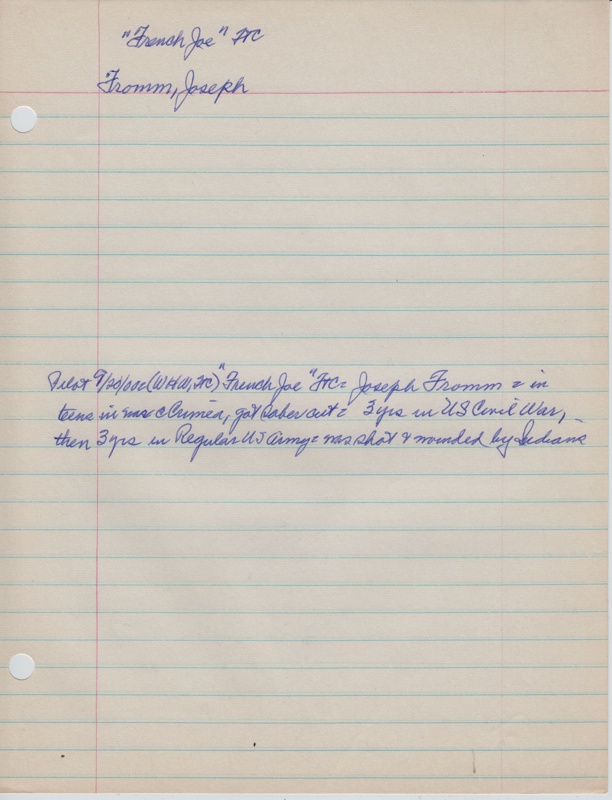 "French Joe" FtC
Fromm, Joseph
Pilot 9/20/00c (WHW, FtC) "French Joe" FtC = Joseph Fromm = in
teens in Crimea, got saber cut = 3 yrs in US Civil War,
then 3 yrs in Regular US Army = was shot & wounded by Indians